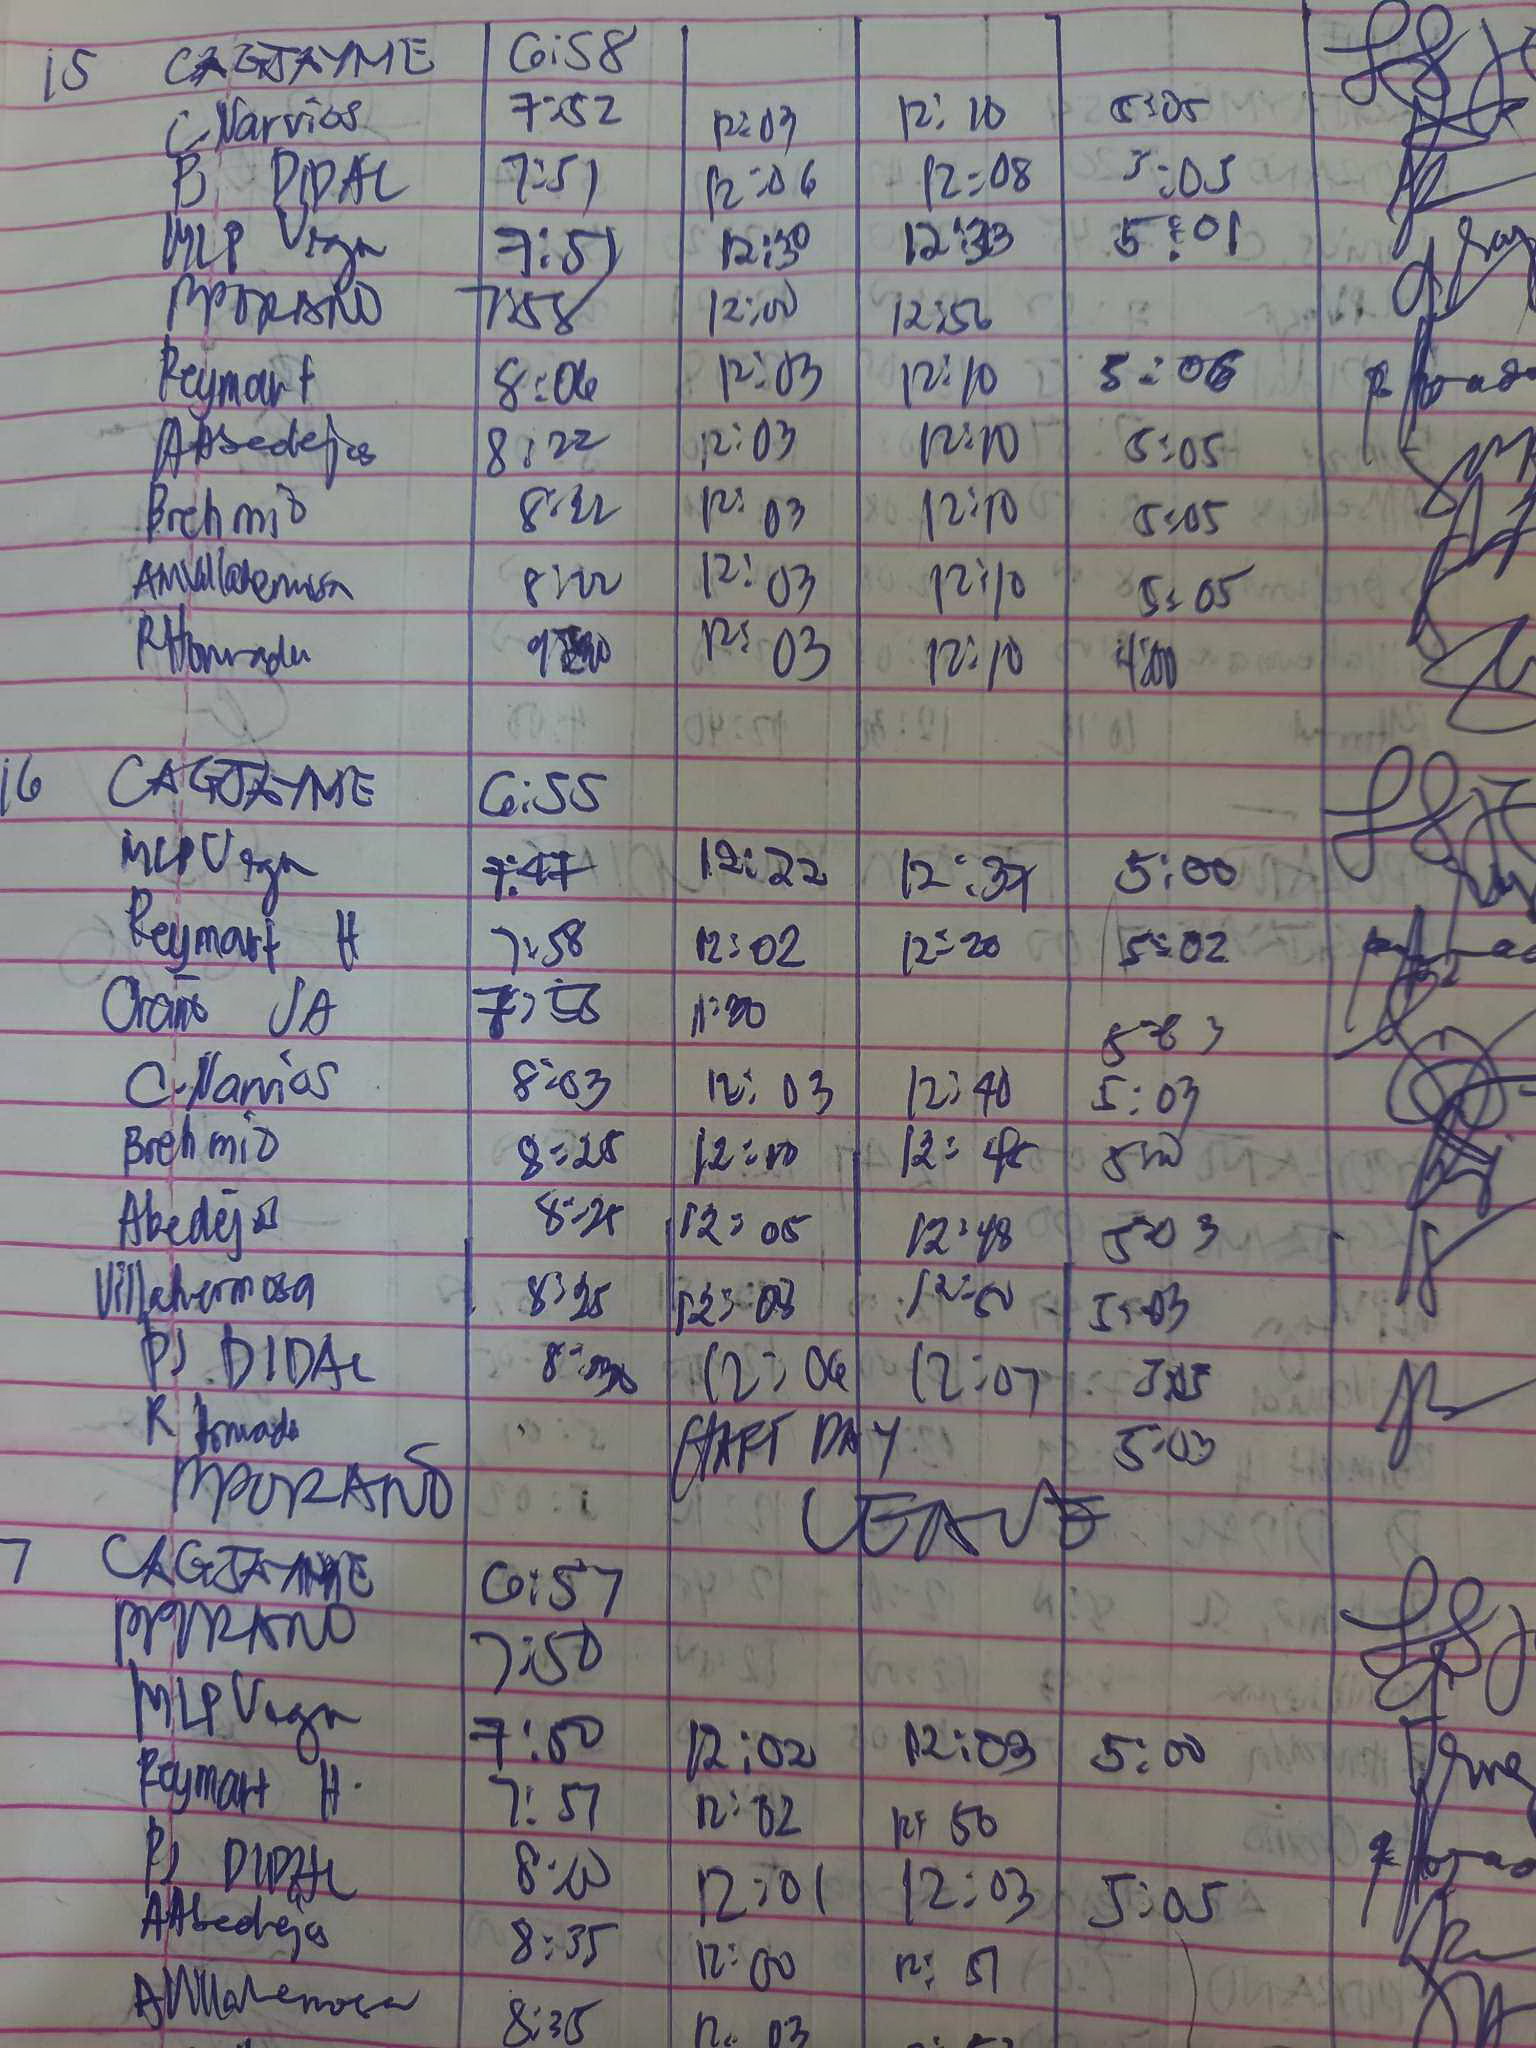 15 CAGJAYME 6:58
C Narvios 7:52 12:03 12:10 5:05
PJ DIDAL 7:51 12:06 12:08 5:05
MLP Vega 7:51 12:30 12:33 5:01
MPORANO 7:58 12:00 12:56
Reymart 8:06 12:03 12:10 5:06
AAbedejas 8:22 12:03 12:10 5:05
Brehmio 8:22 12:03 12:10 5:05
AMVillahermosa 8:22 12:03 12:10 5:05
RHonrado 12:03 12:10 4:00
16 CAGJAYME 6:55
MLP Vega 7:47 12:22 12:37 5:00
Reymart H 7:58 12:02 12:20 5:02
Oraño JA 7:58
C-Narvios 8:03 12:03 12:40 5:03
Brehmio 8:25 12:00 12:45 5:00
Abedejas 8:25 12:05 12:48 5:03
Villahermosa 8:25 12:03 12:50 5:03
PJ DIDAL 12:06 12:07 5:05
R Honrado HALF DAY 5:03
MPORANO LEAVE
7 CAGJAYME 6:57
MPORANO 7:50
MLP Vega 7:50 12:02 12:03 5:00
Reymart H. 7:51 12:02 12:50
PJ DIDAL 8:00 12:01 12:03 5:05
AAbedeja 8:35 12:00 12:51
AMVillahermosa 8:35 12:03